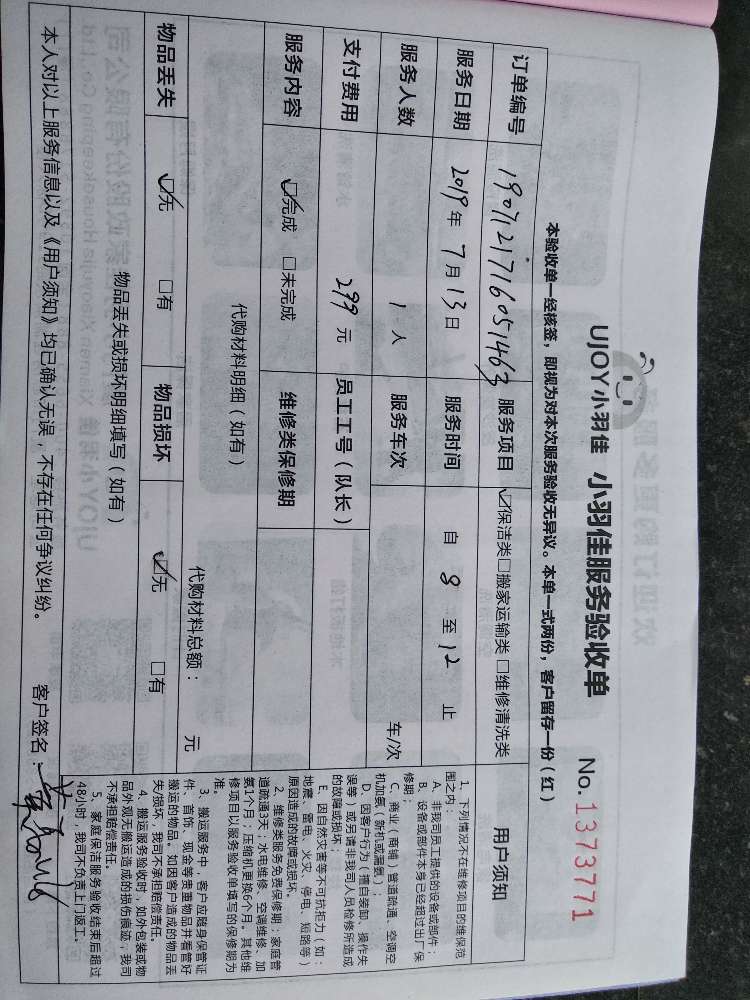 UJOY小羽佳 小羽佳服务验收单 No. 1373771
本验收单一经核签，即视为对本次服务验收无异议。本单一式两份，客户留存一份（红）
订单编号 1907121716051463 服务项目 ☑保洁类□搬家运输类 □维修清洗类
服务日期 2019年 7月 13日 服务时间 自 8 至 12 止
服务人数 1 人 服务车次 车/次
支付费用 299 元 员工工号（队长）
服务内容 ☑完成 □未完成 维修类保修期
代购材料明细（如有）
代购材料总额： 元
物品丢失 ☑无 □有 物品损坏 ☑无 □有
物品丢失或损坏明细填写（如有）
用户须知
1、下列情况不在维修项目的维保范
围之内：
A、非我司员工提供的设备或部件；
B、设备或部件本身已经超过出厂保
修期；
C、商业（商铺）管道疏通、空调空
机加氨（新机或漏氨）；
D、因客户行为（擅自装卸、操作失
误等）或另请非我司人员检修所造成
的故障或损坏；
E、因自然灾害等不可抗拒力（如：
地震、雷电、火灾、停电、短路等）
原因造成的故障或损坏。
2、维修类服务免费保修期：家庭管
道疏通3天；水电维修、空调维修、加
氨1个月；压缩机更换6个月。其他维
修项目以服务验收单填写的保修期为
准。
3、搬运服务中，客户应随身保管证
件、首饰、现金等贵重物品并看管好
搬运的物品。如因客户造成的物品丢
失/损坏，我司不承担赔偿责任。
4、搬运服务验收时，如外包装或物
品外观无搬运造成的损伤痕迹，我司
不承担赔偿责任。
5、家庭保洁服务验收结束后超过
48小时，我司不负责上门返工。
本人对以上服务信息以及《用户须知》均已确认无误，不存在任何争议纠纷。 客户签名：